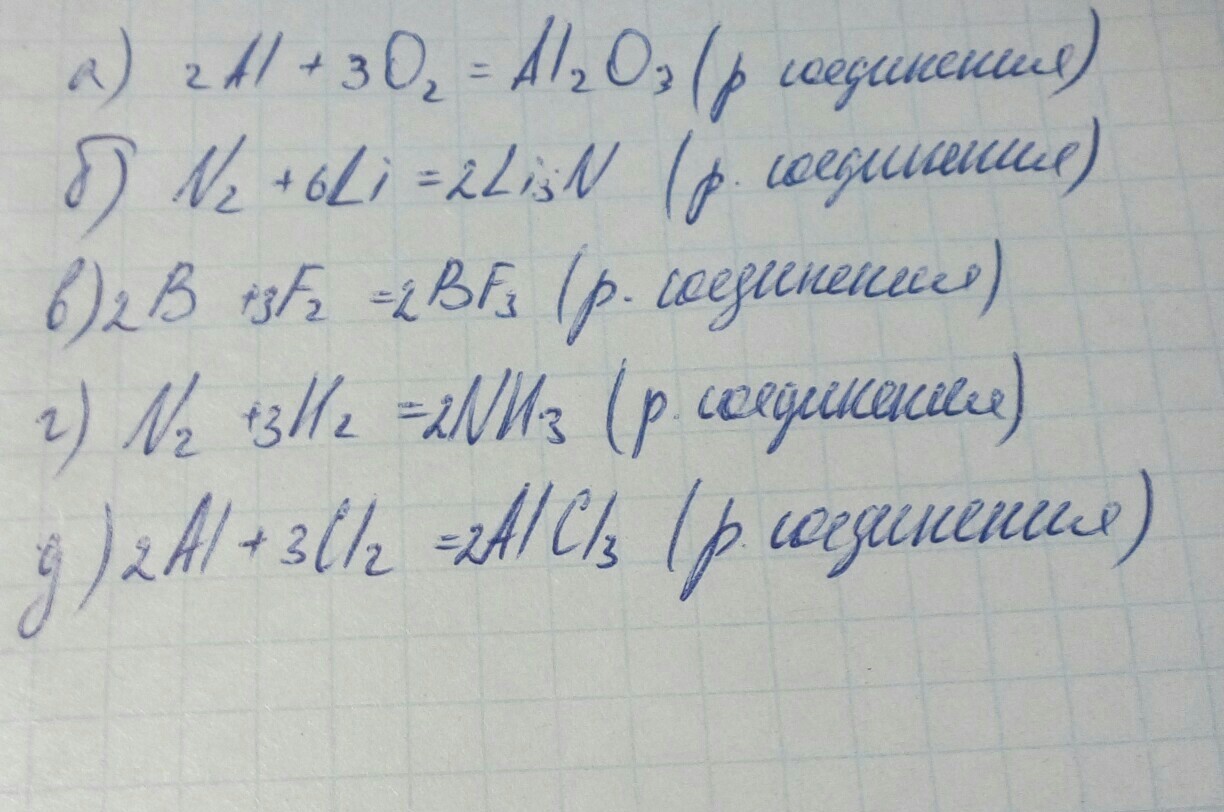 а) 2Al + 3O₂ = Al₂O₃ (р соединения)
б) N₂ + 6Li = 2Li₃N (р. соединения)
в) 2B + 3F₂ = 2BF₃ (р. соединения)
г) N₂ + 3H₂ = 2NH₃ (р. соединения)
д) 2Al + 3Cl₂ = 2AlCl₃ (р. соединения)